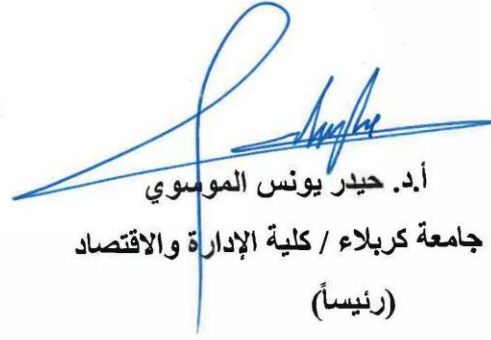 أ.د. حيدر يونس الموسوي
جامعة كربلاء / كلية الإدارة والاقتصاد
(رئيساً)